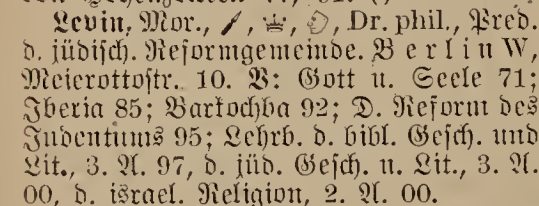 Levin, Mor., Dr. phil., Pred.
d. jüdisch. Reformgemeinde. Berlin W,
Meierottostr. 10. V: Gott u. Seele 71;
Iberia 85; Barkochba 92; D. Reform des
Judentums 95; Lehrb. d. bibl. Gesch. und
Lit., 3. A. 97, d. jüd. Gesch. u. Lit., 3. A.
00, d. israel. Religion, 2. A. 00.